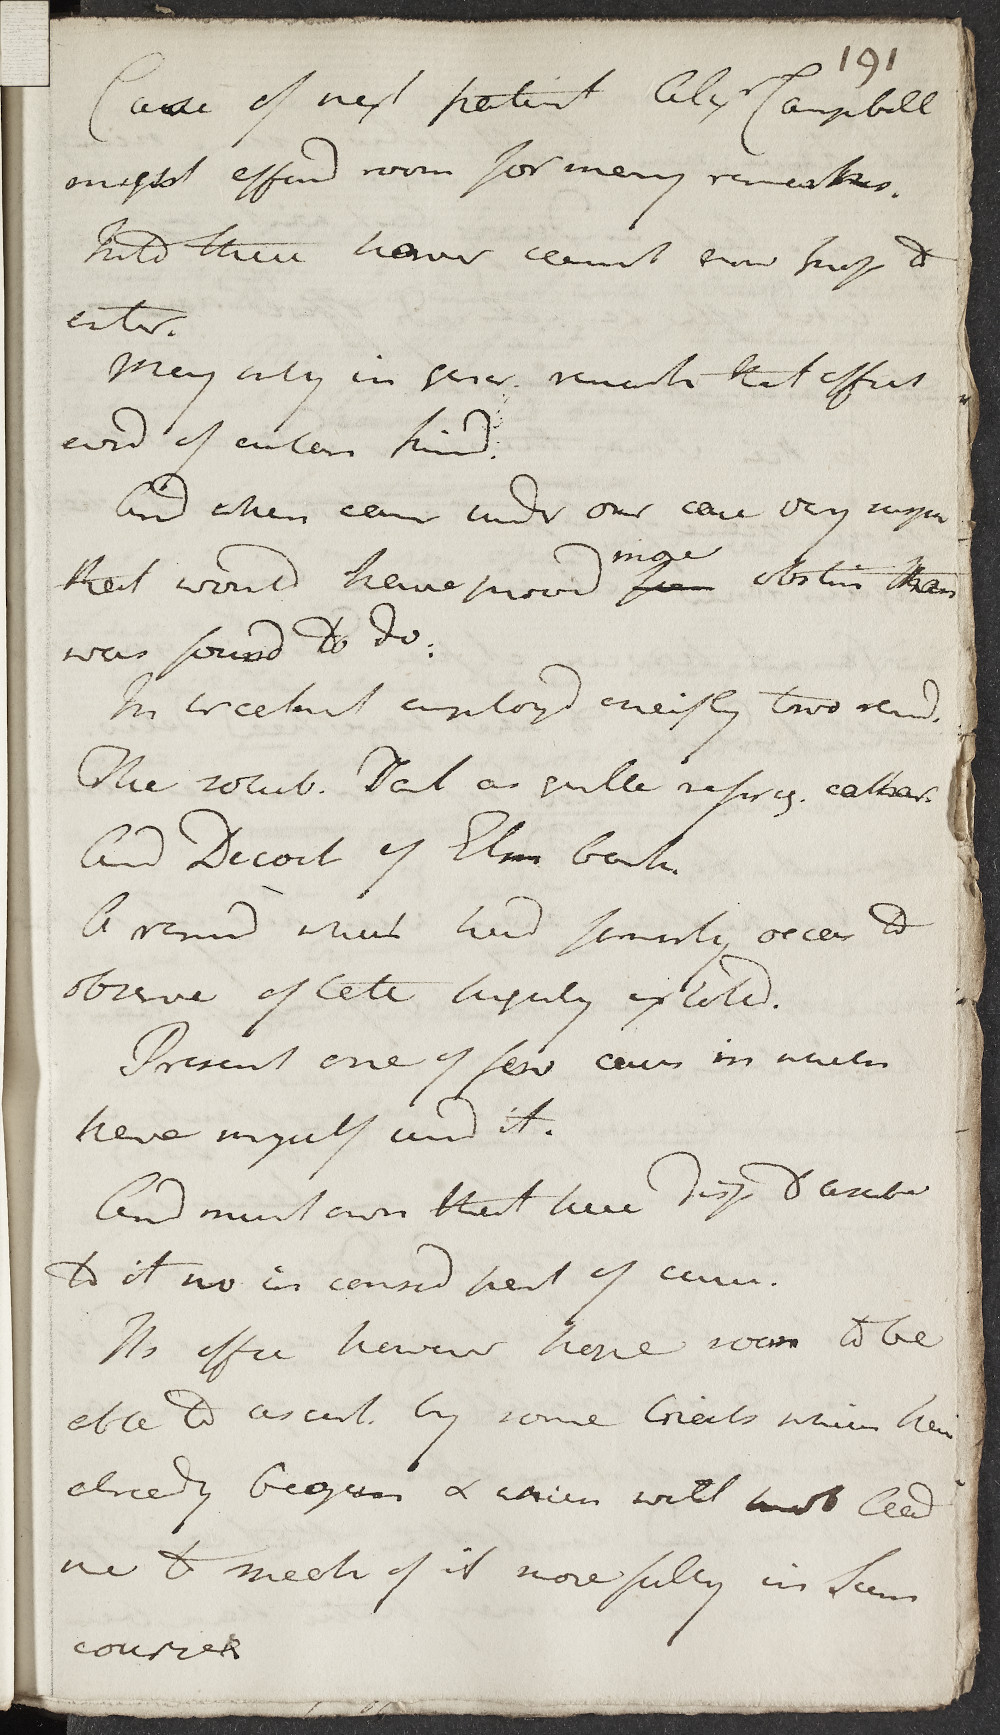 191
Case of next patient Alexr Campbell
might afford room for many remarks.
Into these howevr cannot now prop to
enter.
May only in gener. remark that affect
was of cutan kind.
And when came under our care very
that would have provd more obstin than
was found to do.
In treatment employd chiefly two remd.
The solub. Tart as gentle refrig. cathar.
And Decoct of Elm bark.
A remd which had formerly occas to
observe of late highly extold.
Present one of few cases in which
have myself usd it.
And must own that here disp to ascribe
to it no in consid part of cure.
Its effec however hope soon to be
able to ascert. by some trials which have
already begun & which will lead
me to speak of it more fully in Sum
course